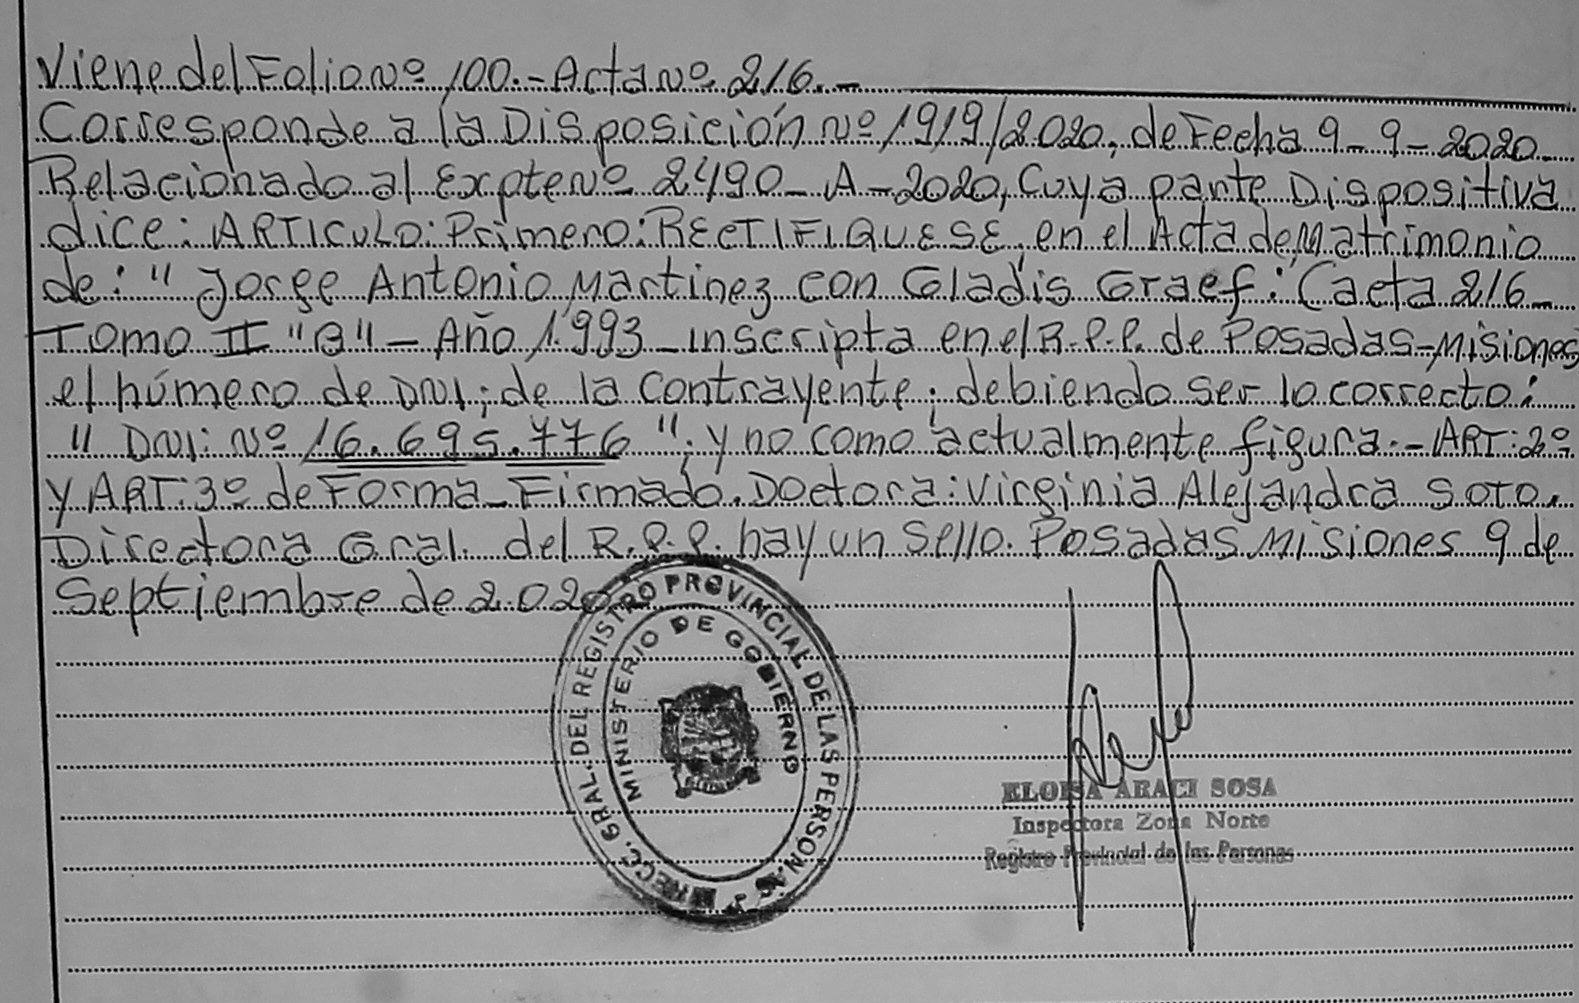 Viene del Folio Nº 100.- Acta Nº 216.-
Corresponde a la Disposición Nº 1919/2020, de Fecha 9-9-2020-
Relacionado al Expte Nº 2490-A-2020, Cuya parte Dispositiva
dice: ARTICULO: Primero: RECTIFIQUESE, en el Acta de Matrimonio
de: " Jorge Antonio Martinez con Gladis Graef: "(acta 216-
Tomo II "B" - Año 1993 - inscripta en el R.P.P. de Posadas-Misiones
el número de DNI; de la Contrayente; debiendo ser lo correcto:
" DNI: Nº 16.695.776 "; y no como actualmente figura.- ART: 2º
y ART: 3º de Forma - Firmado. Doctora: Virginia Alejandra Soto.
Directora Gral. del R.P.P. hay un Sello. Posadas Misiones 9 de
Septiembre de 2.020
GRAL. DEL REGISTRO PROVINCIAL DE LAS PERSONAS
MINISTERIO DE GOBIERNO
ELOISA ARACI SOSA
Inspectora Zona Norte
Registro Provincial de las Personas